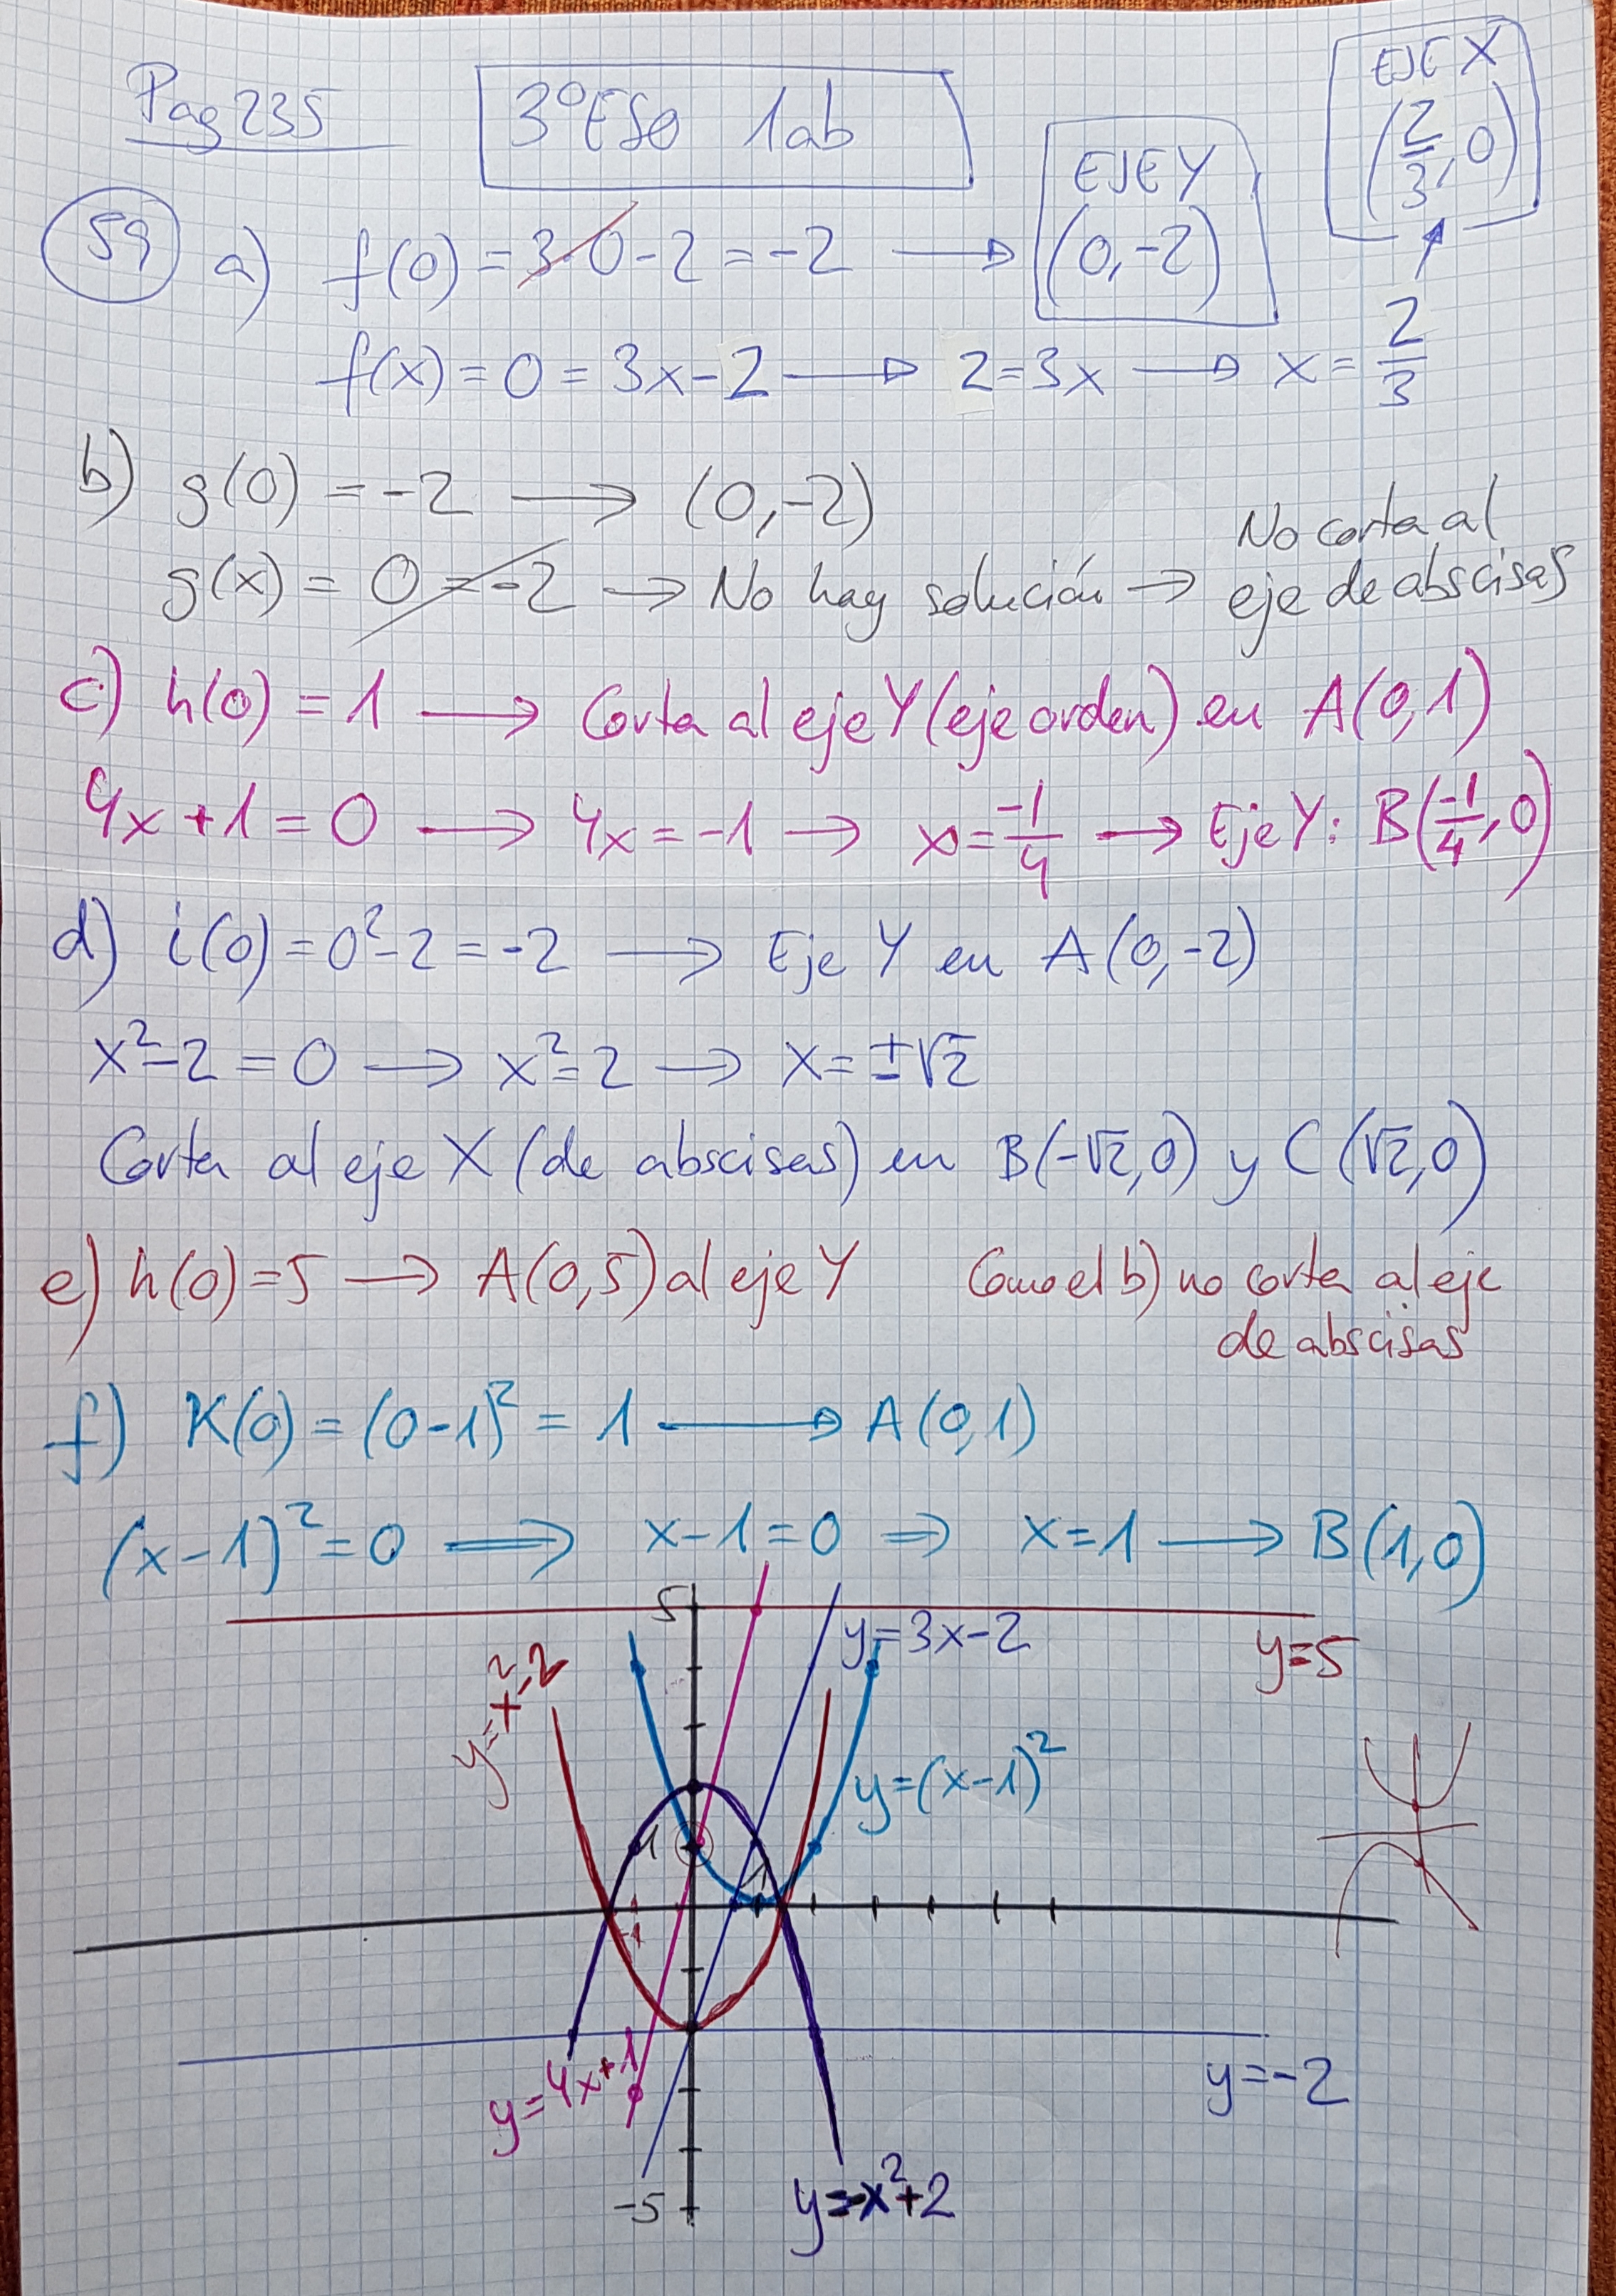 Pag 235
3ºESO 1ab
EJE X
(2/3, 0)
EJE Y
(0,-2)
59 a) f(0) = 3·0-2 = -2 →
f(x) = 0 = 3x-2 → 2=3x → x = 2/3
b) g(0) = -2 → (0,-2)
g(x) = 0 = -2 → No hay solución → No corta al
eje de abscisas
c) h(0) = 1 → Corta al eje Y (eje orden) en A(0,1)
4x+1 = 0 → 4x = -1 → x = -1/4 → Eje Y: B(-1/4, 0)
d) i(0) = 0²-2 = -2 → Eje Y en A(0,-2)
x²-2 = 0 → x²=2 → x = ±√2
Corta al eje X (de abscisas) en B(-√2,0) y C(√2,0)
e) h(0)=5 → A(0,5) al eje Y Como el b) no corta al eje
de abscisas
f) K(0) = (0-1)² = 1 → A(0,1)
(x-1)² = 0 ⇒ x-1=0 ⇒ x=1 → B(1,0)
5
y=3x-2
y=5
y=x²-2
y=(x-1)²
1
1
-1
y=4x+1
y=-2
-5
y=-x²+2